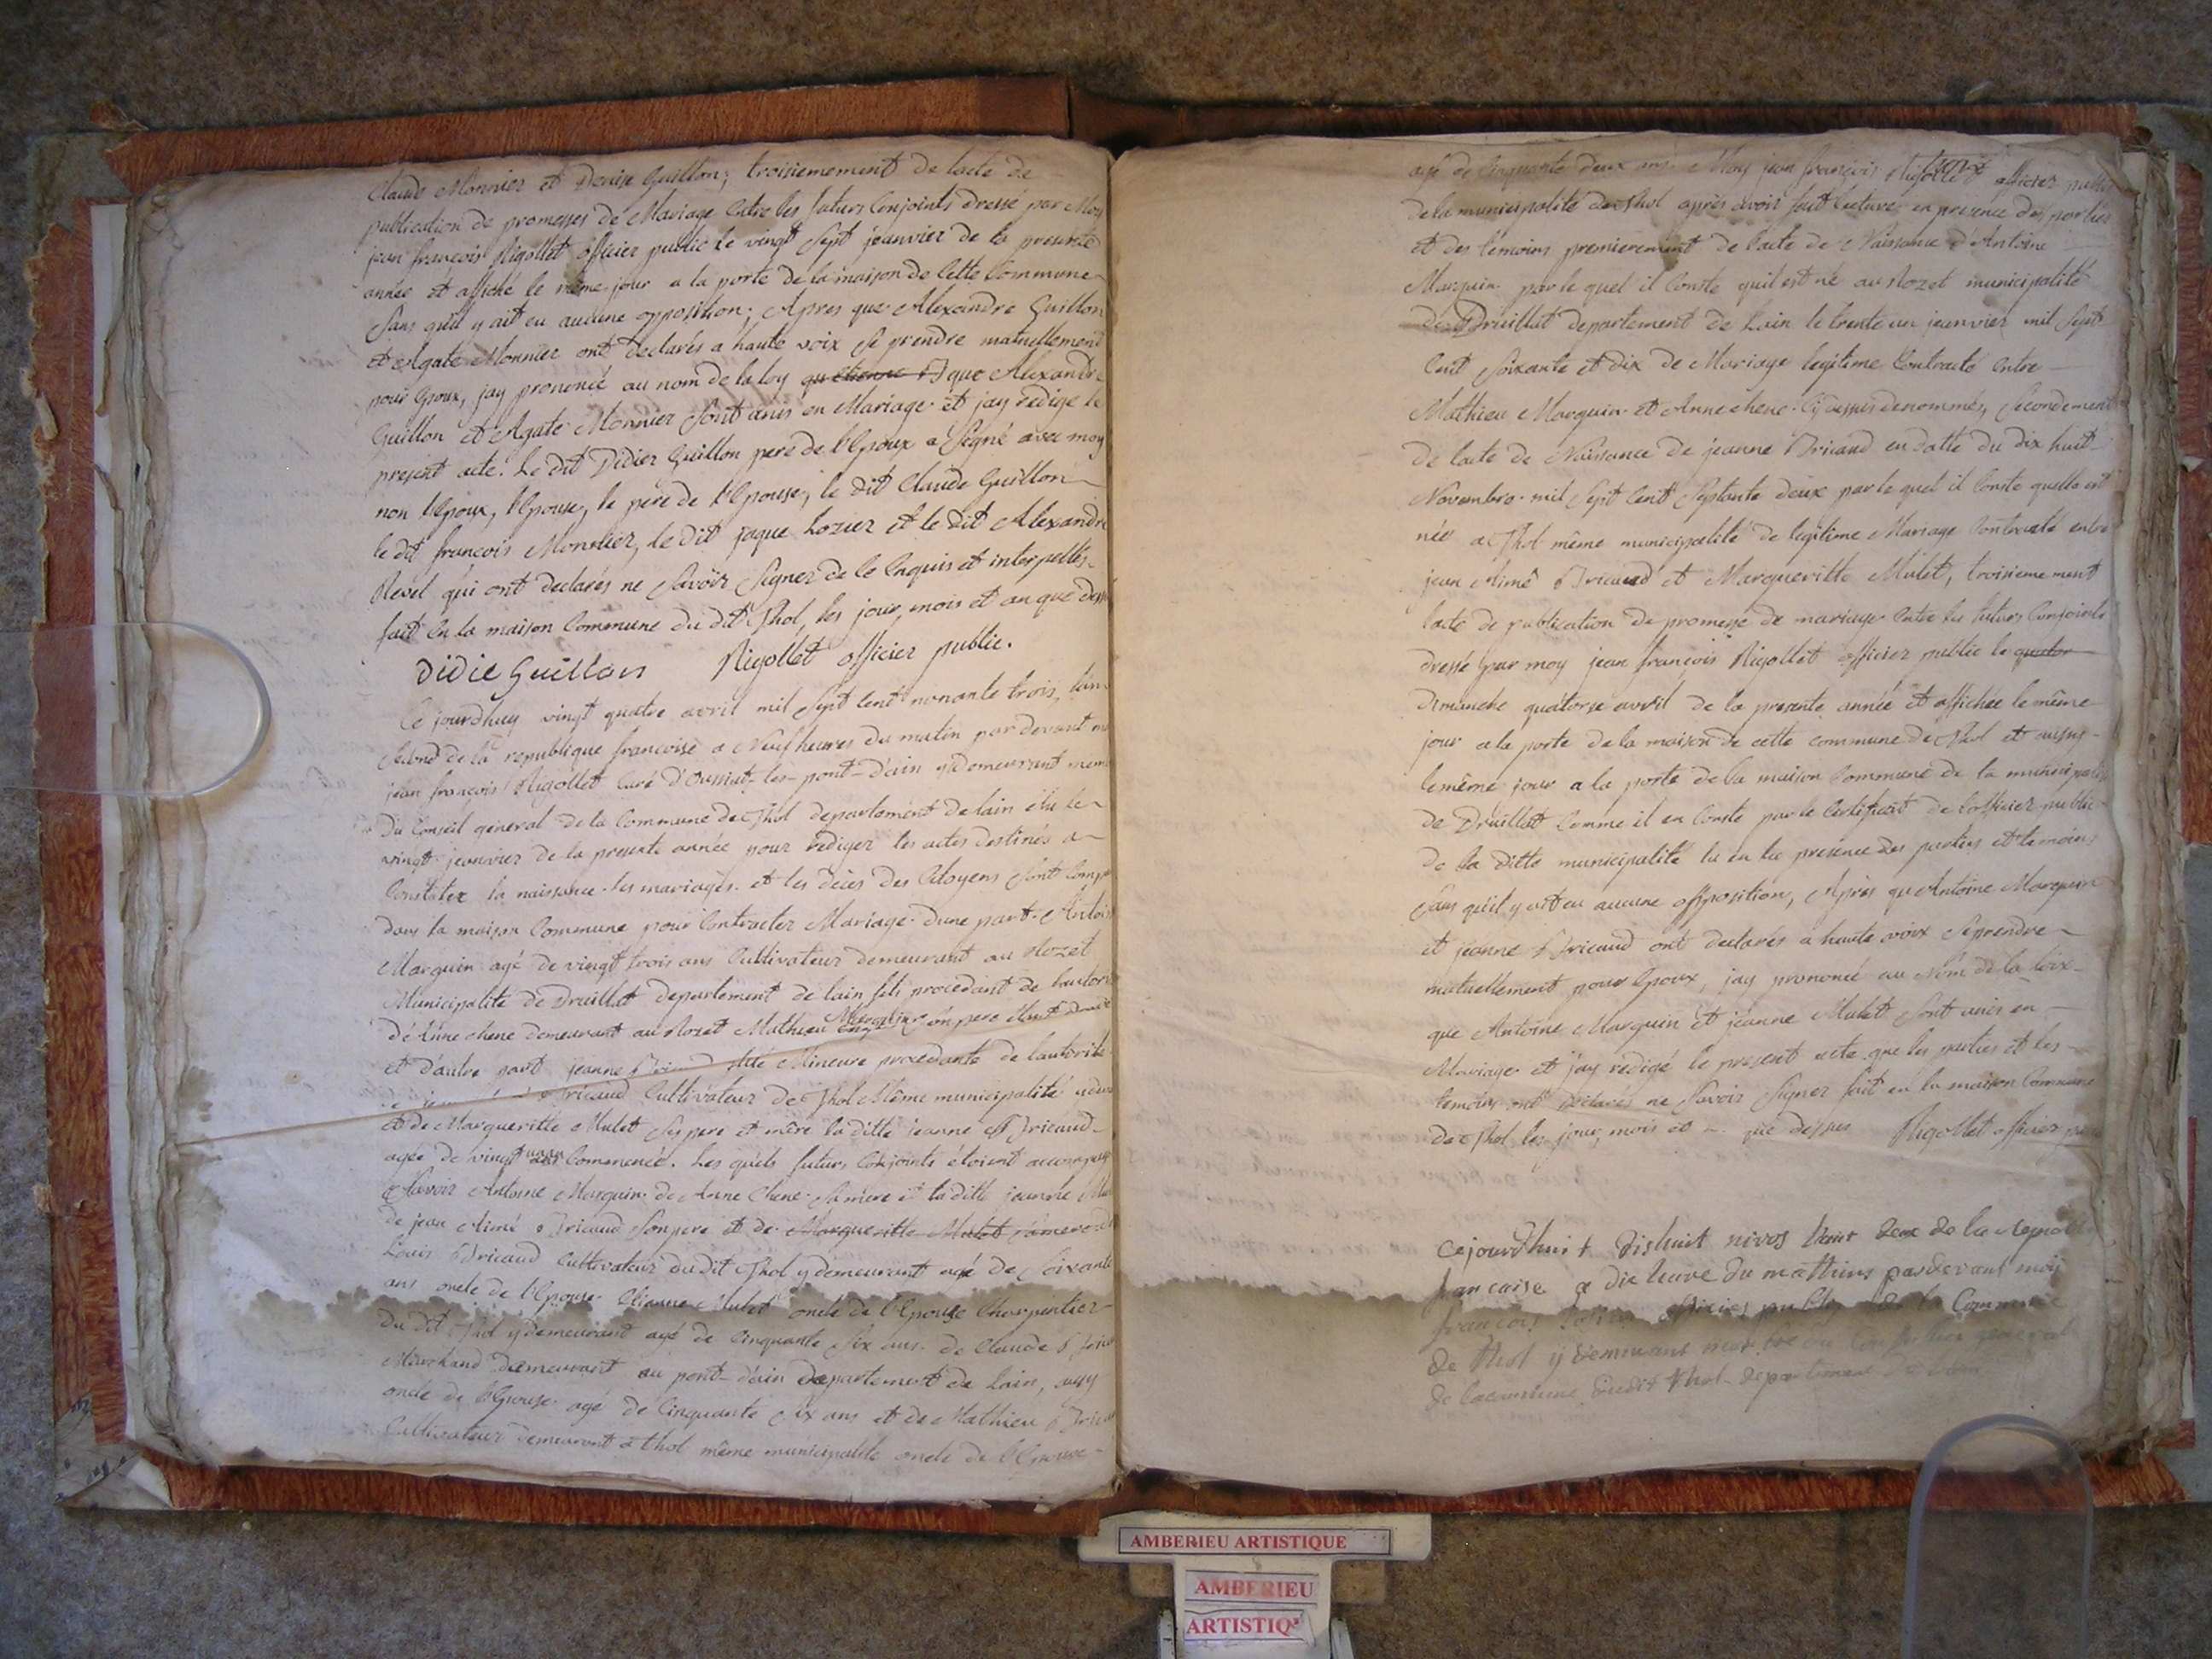 Claude Monnier et Denise Guillon; troisiemement de lacte de
publication de promesses de Mariage Entre les futurs Conjoints dressé par Moy
jean françois Rigollet officier public le vingt Sept jeanvier de la presente
année et affiché le même jour a la porte de la maison de Cette Commune
Sans qu'il y ait eu aucune opposition; Apres que Alexandre Guillon
et Agate Monnier ont declarés a haute voix Se prendre mutuellement
pour Epoux, jay prononcé au nom de la loy que Alexandre
Guillon et Agate Monnier Sont unis en Mariage et jay redigé le
present acte. Le dit Didier Guillon pere de l'Epoux a Signé avec moy
non l'Epoux, l'Epouse, le père de l'Epouse, le dit Claude Guillon
le dit françois Monnier, le dit jaque Lozier et le dit Alexandre
Revel qui ont declarés ne Savoir Signer de ce Enquis et interpellés.
fait En la maison Commune du dit Thol, les jour, mois et an que dessus
Didie Guillon Rigollet officier public.
Ce jourdhuy vingt quatre avril mil Sept Cent nonante trois, lan
Second de la republique françoise a Neuf heures du matin par devant
jean françois Rigollet Curé d'Oussiat-les-pont-d'ain y demeurant
du Conseil general de la Commune de Thol departement de lain élu le
vingt jeanvier de la presente année pour rediger les actes destinés a
Constater la naissance les mariages et les décés des Citoyens Sont
dans la maison Commune pour Contracter Mariage dune part Antoine
Marguin agé de vingt trois ans Cultivateur demeurant au Rozet
Municipalité de Druillat departement de lain fils procedant de lautorité
d'Anne chene demeurant au Rozet Mathieu Marguin son pere étant
et d'autre part jeanne Mineure procedante de lautorité
Bricaud Cultivateur de Thol Même municipalité
et de Margueritte Mulet Ses pere et mère la ditte jeanne Bricaud
agée de vingt ans Commencé. Les quels futurs Conjoints étoient
Savoir Antoine Marguin de Anne Chene Sa mere et la ditte jeanne
de jean Aimé Bricaud Son pere et de Margueritte Mulet Sa mere
Louis Bricaud Cultivateur du dit Thol y demeurant agé de Soixante
ans oncle de l'Epouse Etienne Mulet oncle de l'Epouse Charpentier
du dit Thol y demeurant agé de Cinquante Six ans de Claude
Marchand demeurant au pont-d'ain departement de lain, aussy
oncle de l'Epouse agé de Cinquante Six ans et de Mathieu
Cultivateur demeurant a Thol même municipalité oncle de l'Epouse
agé de Cinquante deux ans Moy jean françois Rigollet officier public
de la municipalité de Thol après avoir fait lecture en presence des parties
et des temoins premierement de l'acte de Naissance d'Antoine
Marguin par le quel il Conste qu'il est né au Rozet municipalité
de Druillat departement de Lain le trente un jeanvier mil Sept
Cent Soixante et dix de Mariage legitime Contracté Entre
Mathieu Marguin et Anne chene Cy dessus denommés, Secondement
de lacte de Naissance de jeanne Bricaud en datte du dix huit
Novembre mil Sept Cent Septante deux par le quel il Conste quelle est
née a Thol même municipalité de legitime Mariage Contracté entre
jean Aimé Bricaud et Margueritte Mulet, troisiemement
lacte de publication de promesse de mariage Entre les futurs Conjoints
dressé par moy jean françois Rigollet officier public le quator
Dimanche quatorse avril de la presente année et affichée le même
jour a la porte de la maison de cette commune de Thol et aussy
le même jour a la porte de la maison Commune de la municipalité
de Druillat Comme il en Conste par le Certificat de l'officier public
de la ditte municipalité lu en la presence des parties et temoins
Sans qu'il y ait eu aucune opposition, Après que Antoine Marguin
et jeanne Bricaud ont declarés a haute voix Se prendre
mutuellement pour Epoux, jay prononcé au Nom de la loix
que Antoine Marguin et jeanne Mulet Sont unis en
Mariage et j'ay redigé le present acte que les parties et les
temoins ont declarés ne Savoir Signer fait en la maison Commune
de Thol les jour, mois et que dessus Rigollet officier
Cejourdhuit dishuit nivos lant deux de la
francaise a die heure du mattins pardevant moy
francois officier public de la Commune
de thol y demeurant general
de la commune dudit thol departement
AMBERIEU ARTISTIQUE
AMBERIEU
ARTISTIQ